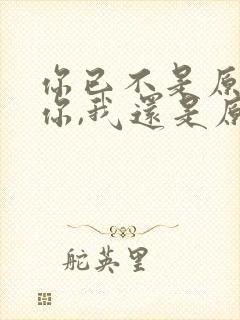 你已不是原
你,我還是原
舵英里